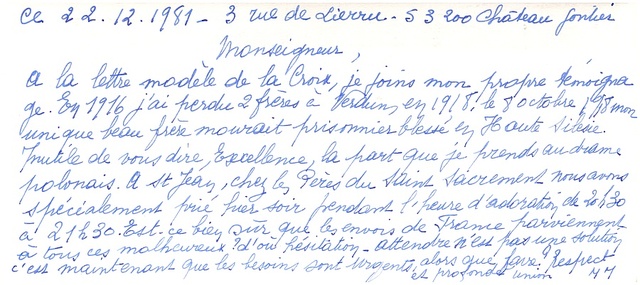 Ce 22.12.1981 - 3 rue de Lierru - 53200 Château Gontier
Monseigneur,
A la lettre modèle de la Croix, je joins mon propre témoigna
ge. En 1916 j'ai perdu 2 frères à Verdun, en 1918, le 8 octobre 1918 mon
unique beau frère mourait prisonnier blessé en Haute Silésie.
Inutile de vous dire, Excellence, la part que je prends au drame
polonais. A St Jean, chez les Pères du Saint Sacrement nous avons
spécialement prié hier soir pendant l'heure d'adoration de 20h30
à 21h30. Est-ce bien sur que les envois de France parviennent
à tous ces malheureux? d'où hésitation - attendre n'est pas une solution
c'est maintenant que les besoins sont urgents, alors que faire? Respect
et profonde union